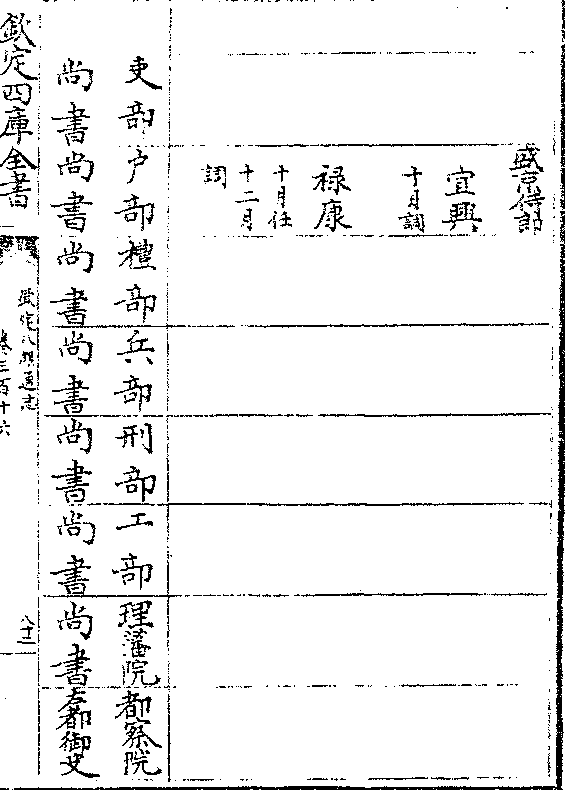 盛京侍郎
宜興
十月調
祿康
十月任
十二月
調
吏部尚書
戶部尚書
禮部尚書
兵部尚書
刑部尚書
工部尚書
理藩院尚書
都察院左都御史
欽定四庫全書
欽定八旗通志
卷三百十六